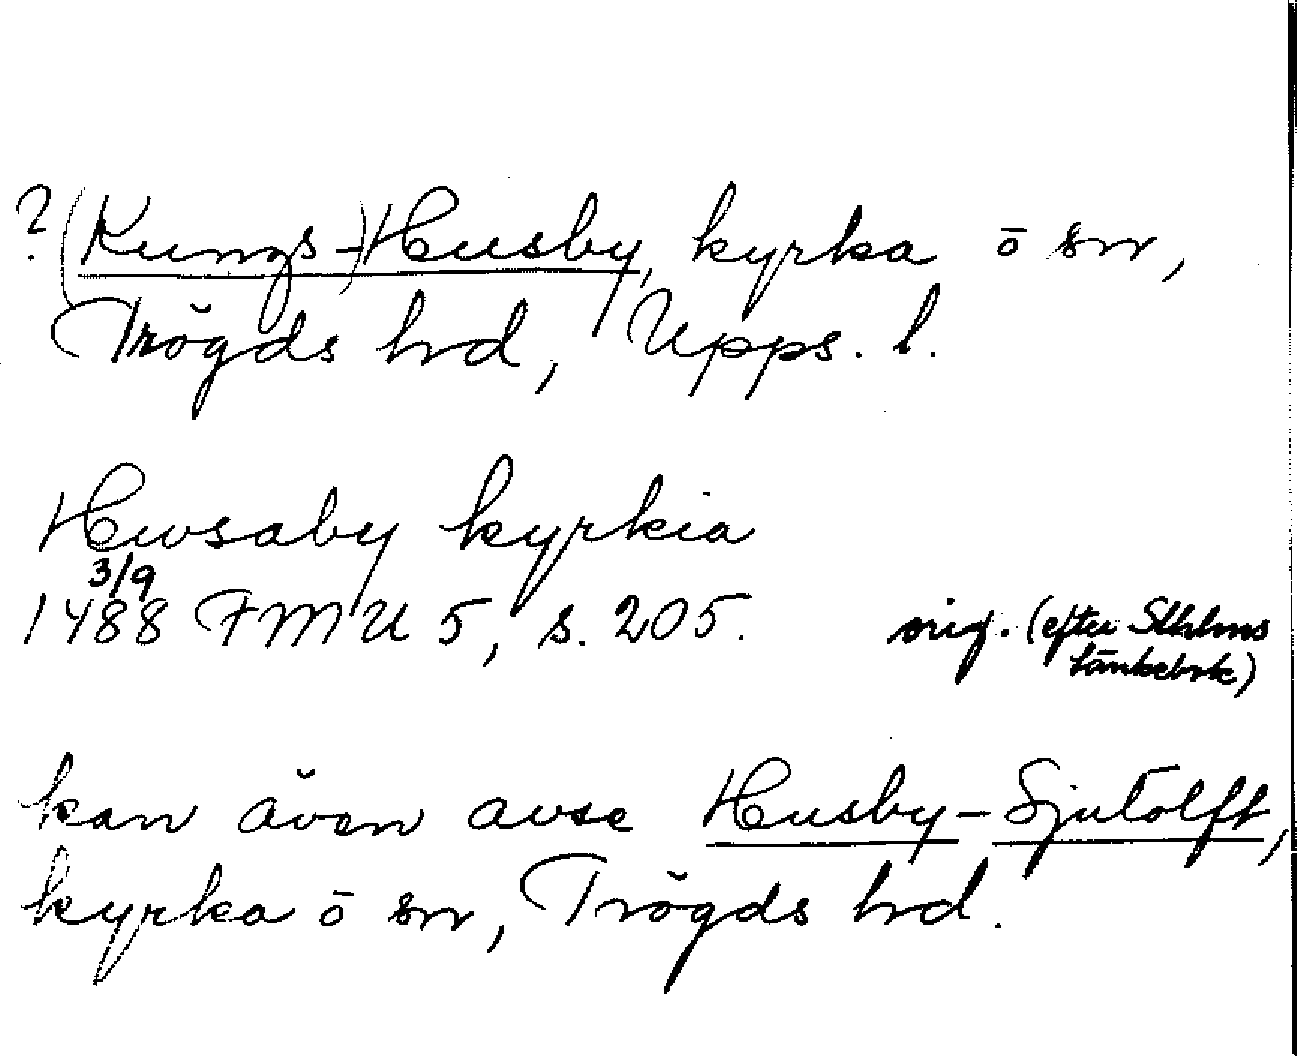 ? (Kungs-)Husby, kyrka ō sn,
Trögds hrd, Upps. l.
Hwsaby kyrkia
3/9
1488 FMU 5, s. 205. orig. (efter Sthlms
tänkebok)
kan även avse Husby-Sjutolft,
kyrka ō sn, Trögds hrd.